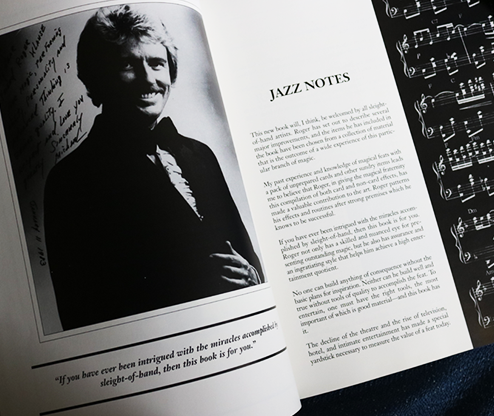 thinking is
I
love you
"If you have ever been intrigued with the miracles accomplished
sleight-of-hand, then this book is for you."
JAZZ NOTES
This new book will, I think, be welcomed by all sleight-
of-hand artists. Roger has set out to describe several
major improvements, and the items he has included in
the book have been chosen from a collection of material
that is the outcome of a wide experience of this partic-
ular branch of magic.
My past experience and knowledge of magical feats with
a pack of unprepared cards and other sundry items leads
me to believe that Roger, in giving the magical fraternity
this compilation of both card and non-card effects, has
made a valuable contribution to the art. Roger patterns
his effects and routines after strong premises which he
knows to be successful.
If you have ever been intrigued with the miracles accom-
plished by sleight-of-hand, then this book is for you.
Roger not only has a skilled and nuanced eye for pre-
senting outstanding magic, but he also has assurance and
an ingratiating style that helps him achieve a high enter-
tainment quotient.
No one can build anything of consequence without the
basic plans for inspiration. Neither can be build well and
true without tools of quality to accomplish the feat. To
entertain, one must have the right tools, the most
important of which is good material—and this book has
it.
The decline of the theatre and the rise of television,
hotel, and intimate entertainment has made a special
yardstick necessary to measure the value of a feat today.